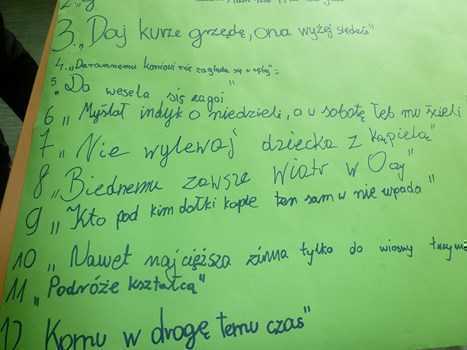 3. „Daj kurze grzędę, ona wyżej siedzi"
4. „Darowanemu koniowi nie zagląda się w zęby"
5. „Do wesela się zagoi"
6 „Myślał indyk o niedzieli, a w sobotę łeb mu ścieli
7 „Nie wylewaj dziecka z kąpielą"
8 „Biednemu zawsze wiatr w Oczy"
9 „Kto pod kim dołki kopie ten sam w nie wpada"
10 „Nawet najcięższa zima tylko do wiosny trzyma
11 „Podróże kształcą"
12 Komu w drogę temu czas"